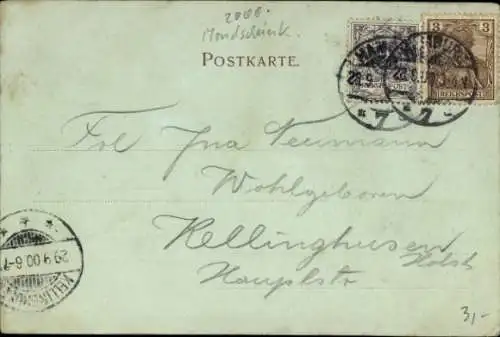 2000.
Mondschein.
POSTKARTE.
3
REICHSPOST
7 7
Frl Ina Neumann
Wohlgeboren
Kellinghusen
Holst
Hauptstr
29.9.00.6-7
3,-